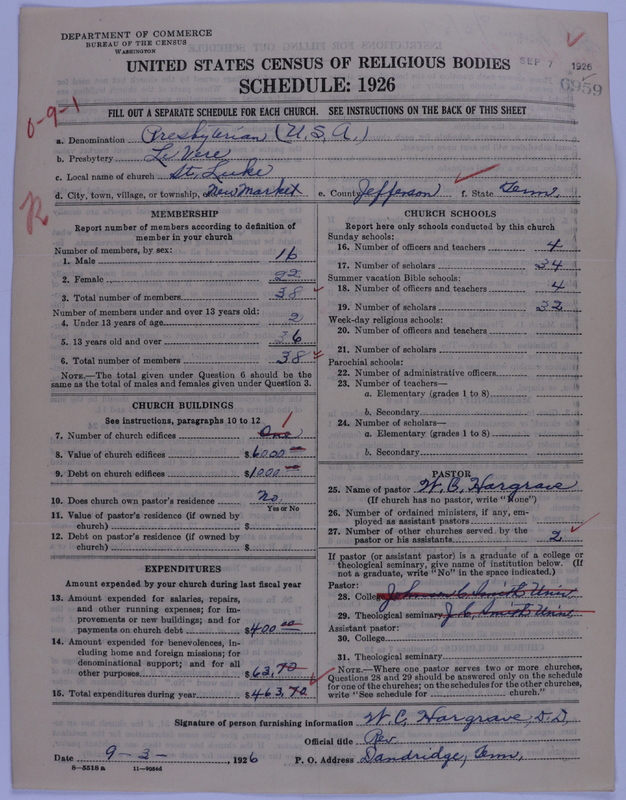 DEPARTMENT OF COMMERCE
BUREAU OF THE CENSUS
WASHINGTON
UNITED STATES CENSUS OF RELIGIOUS BODIES
SEP 7 1926
SCHEDULE: 1926
6959
FILL OUT A SEPARATE SCHEDULE FOR EACH CHURCH. SEE INSTRUCTIONS ON THE BACK OF THIS SHEET
0-9-1
a. Denomination Presbyterian (U.S.A.)
b. Presbytery Le Vere
c. Local name of church St. Luke
d. City, town, village, or township, or New Market e. County Jefferson f. State Tenn.
R
MEMBERSHIP
Report number of members according to definition of
member in your church
Number of members, by sex:
1. Male 16
2. Female 22
3. Total number of members 38
Number of members under and over 13 years old:
4. Under 13 years of age 2
5. 13 years old and over 36
6. Total number of members 38
NOTE.—The total given under Question 6 should be the
same as the total of males and females given under Question 3.
CHURCH BUILDINGS
See instructions, paragraphs 10 to 12
7. Number of church edifices One 1
8. Value of church edifices $6000
9. Debt on church edifices $1000
10. Does church own pastor's residence No.
Yes or No
11. Value of pastor's residence (if owned by
church) $
12. Debt on pastor's residence (if owned by
church) $
EXPENDITURES
Amount expended by your church during last fiscal year
13. Amount expended for salaries, repairs,
and other running expenses; for im-
provements or new buildings; and for
payments on church debt $400.00
14. Amount expended for benevolences, in-
cluding home and foreign missions; for
denominational support; and for all
other purposes $63.70
15. Total expenditures during year $463.70
CHURCH SCHOOLS
Report here only schools conducted by this church
Sunday schools:
16. Number of officers and teachers 4
17. Number of scholars 34
Summer vacation Bible schools:
18. Number of officers and teachers 4
19. Number of scholars 32
Week-day religious schools:
20. Number of officers and teachers
21. Number of scholars
Parochial schools:
22. Number of administrative officers
23. Number of teachers—
a. Elementary (grades 1 to 8)
b. Secondary
24. Number of scholars—
a. Elementary (grades 1 to 8)
b. Secondary
PASTOR
25. Name of pastor W. C. Hargrave
(If church has no pastor, write "None")
26. Number of ordained ministers, if any, em-
ployed as assistant pastors
27. Number of other churches served by the
pastor or his assistants 2
If pastor (or assistant pastor) is a graduate of a college or
theological seminary, give name of institution below. (If
not a graduate, write "No" in the space indicated.)
Pastor:
28. College Johnson C. Smith Univ
29. Theological seminary J. C. Smith Univ.
Assistant pastor:
30. College
31. Theological seminary
NOTE.—Where one pastor serves two or more churches,
Questions 28 and 29 should be answered only on the schedule
for one of the churches; on the schedules for the other churches,
write "See schedule for church."
Signature of person furnishing information W. C. Hargrave, D.D.
Official title Rev
Date 9-3- 1926 P. O. Address Dandridge, Tenn.
8-5518 a